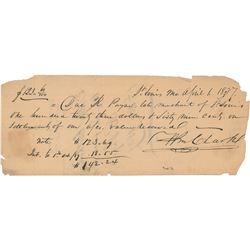 $123.69/100 St Louis Mo April 6 1837
Due H Payne late merchant of St Louis
one hundred twenty three dollars & sixty nine cents on
settlement of our a/c, value received
Note $123.69 Wm Clark
Int. to 18.55
$142.24